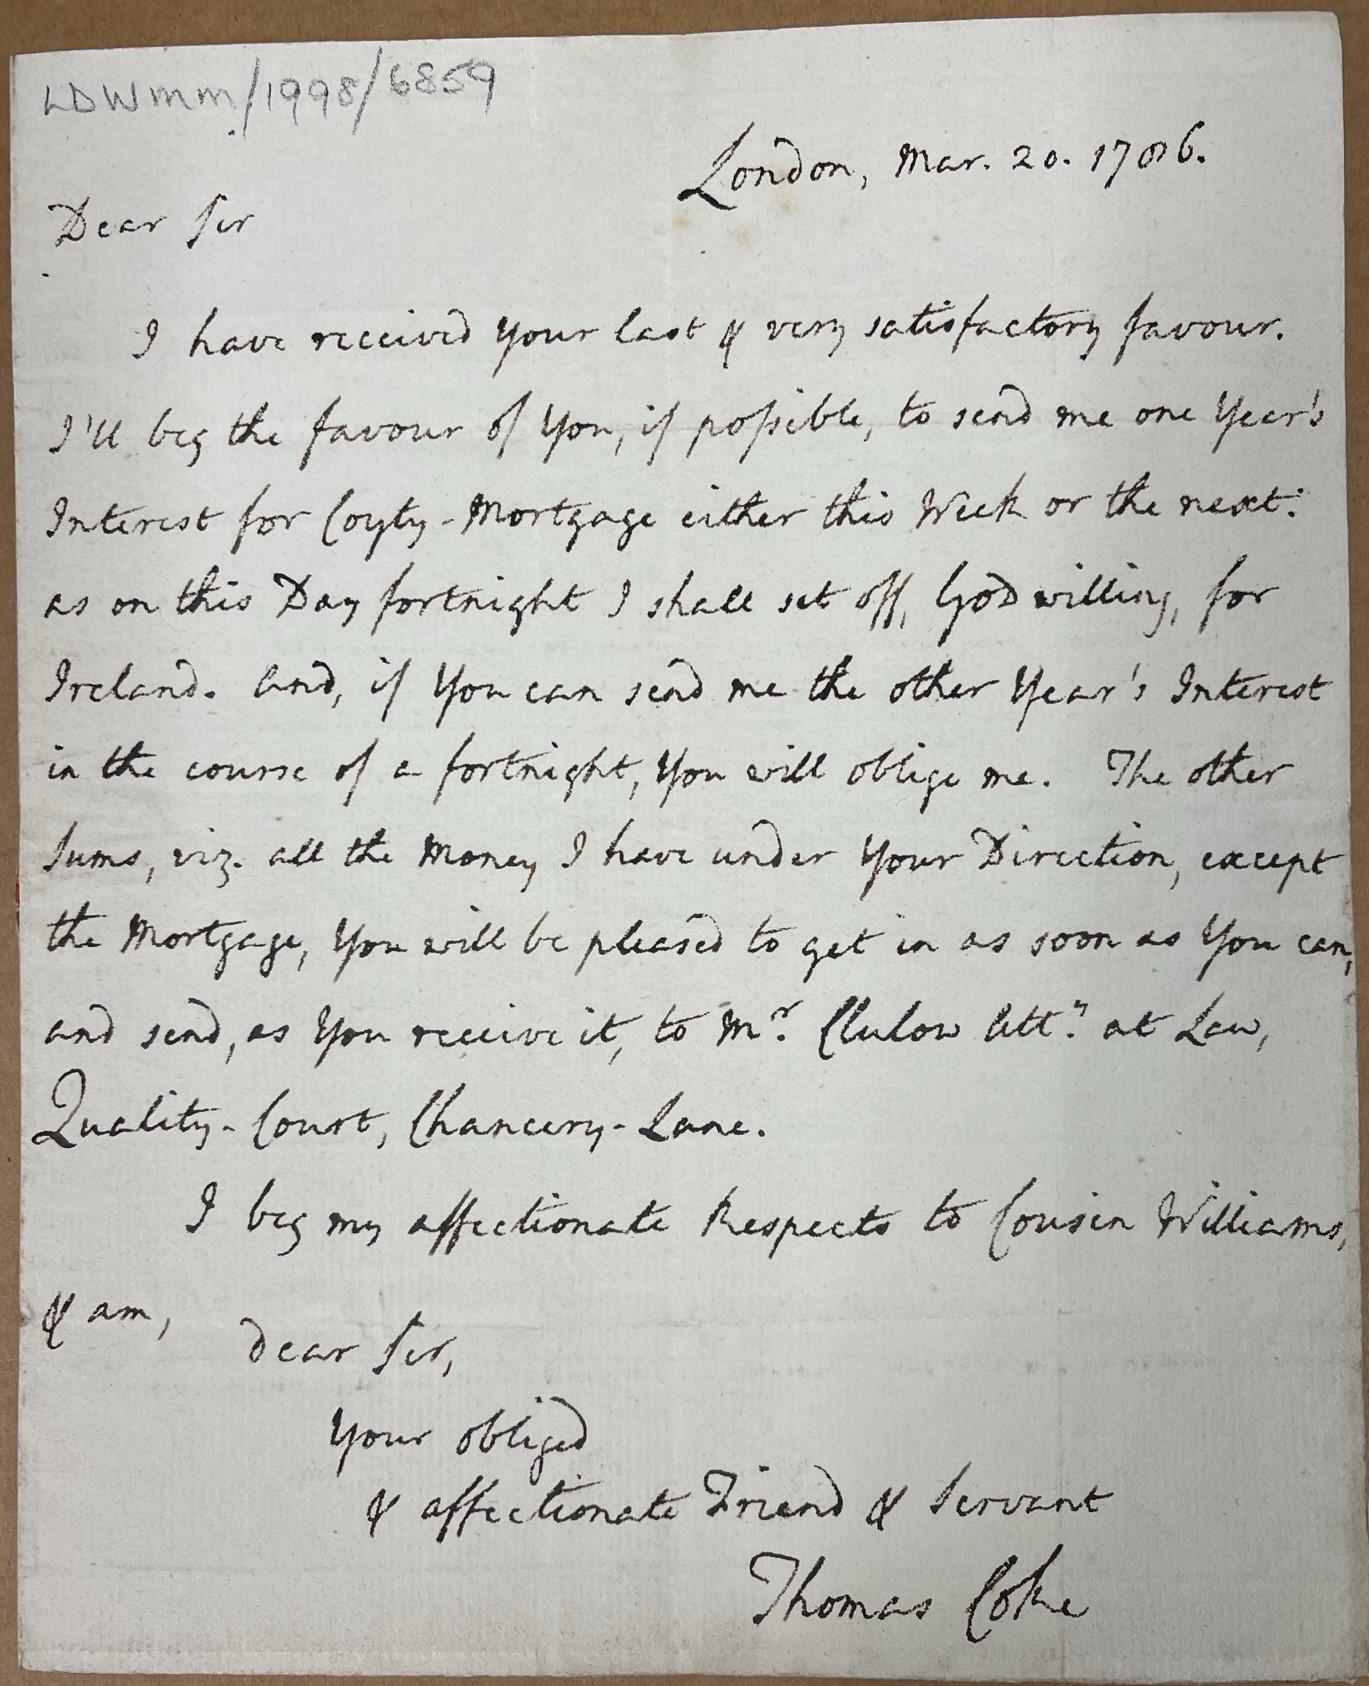 LDWMM/1998/6859
London, Mar. 20. 1786.
Dear Sir
I have received your last & very satisfactory favour.
I'll beg the favour of You, if possible, to send me one Year's
Interest for Coyty-Mortgage either this Week or the next:
as on this Day fortnight I shall set off, God willing, for
Ireland. And, if You can send me the other Year's Interest
in the course of a fortnight, You will oblige me. The other
Sums, viz. all the Money I have under Your Direction, except
the Mortgage, You will be pleased to get in as soon as You can,
and send, as You receive it, to Mr. Clulow Att.y at Law,
Quality-Court, Chancery-Lane.
I beg my affectionate Respects to Cousin Williams,
& am,
dear Sir,
Your obliged
& affectionate Friend & Servant
Thomas Coke